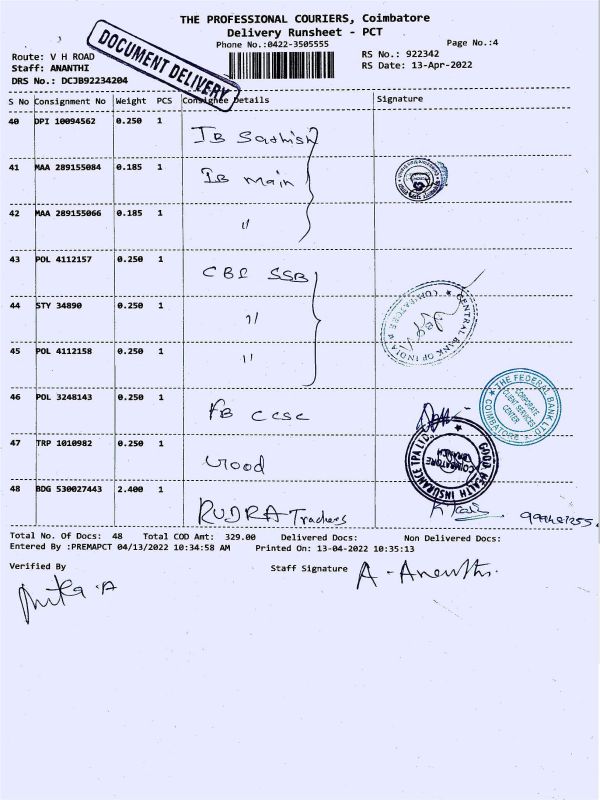 THE PROFESSIONAL COURIERS, Coimbatore
Delivery Runsheet - PCT
Phone No.:0422-3505555
Page No.:4
DOCUMENT DELIVERY
Route: V H ROAD
RS No.: 922342
Staff: ANANTHI
RS Date: 13-Apr-2022
DRS No.: DCJB92234204
S No Consignment No Weight PCS Consignee Details Signature
40 DPI 10094562 0.250 1
IB Sathish
41 MAA 289155084 0.185 1
IB main
42 MAA 289155066 0.185 1
"
43 POL 4112157 0.250 1
CBI SSB
44 STY 34890 0.250 1
"
CENTRAL BANK OF INDIA
COIMBATORE
45 POL 4112158 0.250 1
"
46 POL 3248143 0.250 1
FB CCSC
THE FEDERAL BANK LTD.
COIMBATORE
CORPORATE
CLIENT SERVICES
CENTER
47 TRP 1010982 0.250 1
Good
GOOD HEALTH INSURANCE TPA LTD.
COIMBATORE
BRANCH
48 BDG 530027443 2.400 1
RUDRA Traders
Total No. Of Docs: 48 Total COD Amt: 329.00 Delivered Docs: Non Delivered Docs:
Entered By :PREMAPCT 04/13/2022 10:34:58 AM Printed On: 13-04-2022 10:35:13
Verified By
Staff Signature
A - Ananthi